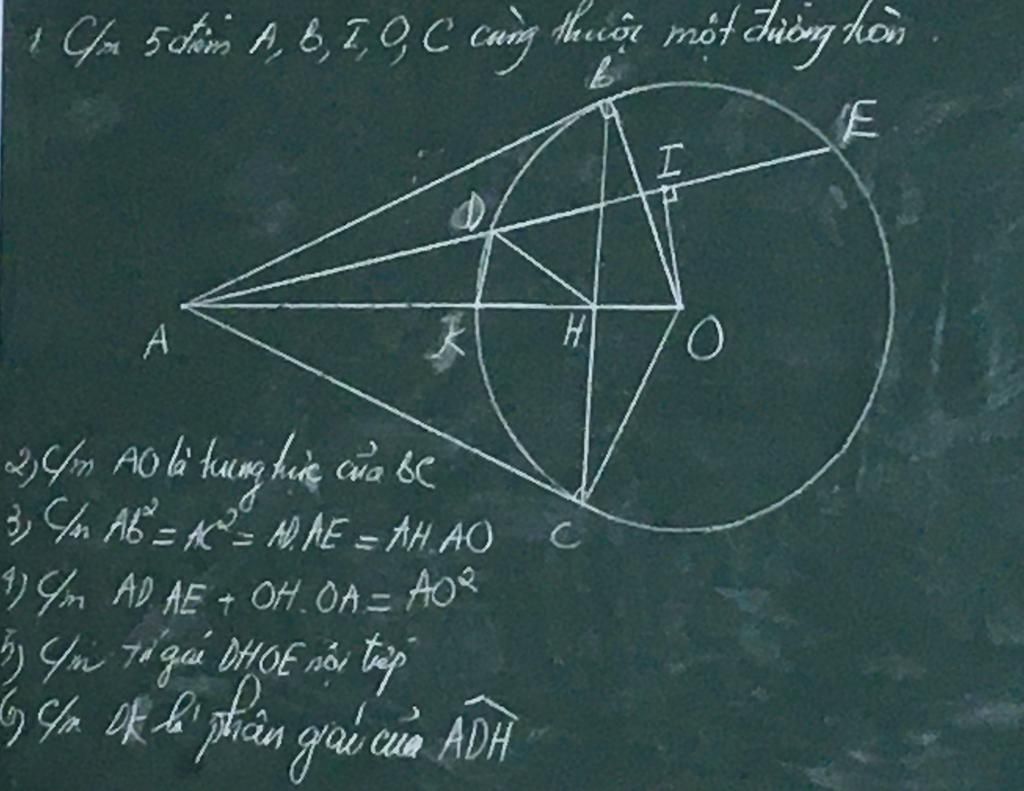 1 C/m 5 điểm A, B, I, O, C cùng thuộc một đường tròn.
B
E
I
D
A
K
H
O
C
2) C/m AO là trung trực của BC
3) C/m AB² = AC² = AD.AE = AH.AO
4) C/m AD.AE + OH.OA = AO²
5) C/m Tứ giác DHOE nội tiếp
6) C/m DK là phân giác của ADH